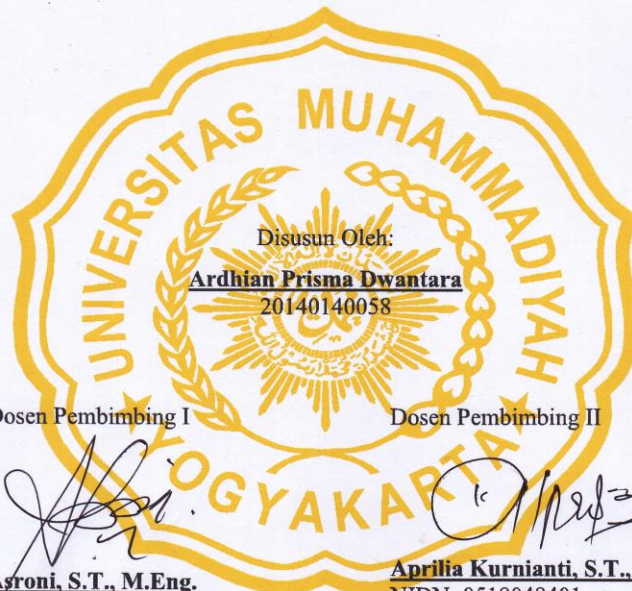 UNIVERSITAS MUHAMMADIYAH
YOGYAKARTA
Disusun Oleh:
Ardhian Prisma Dwantara
20140140058
Dosen Pembimbing I
Dosen Pembimbing II
Asroni, S.T., M.Eng.
Aprilia Kurnianti, S.T.,